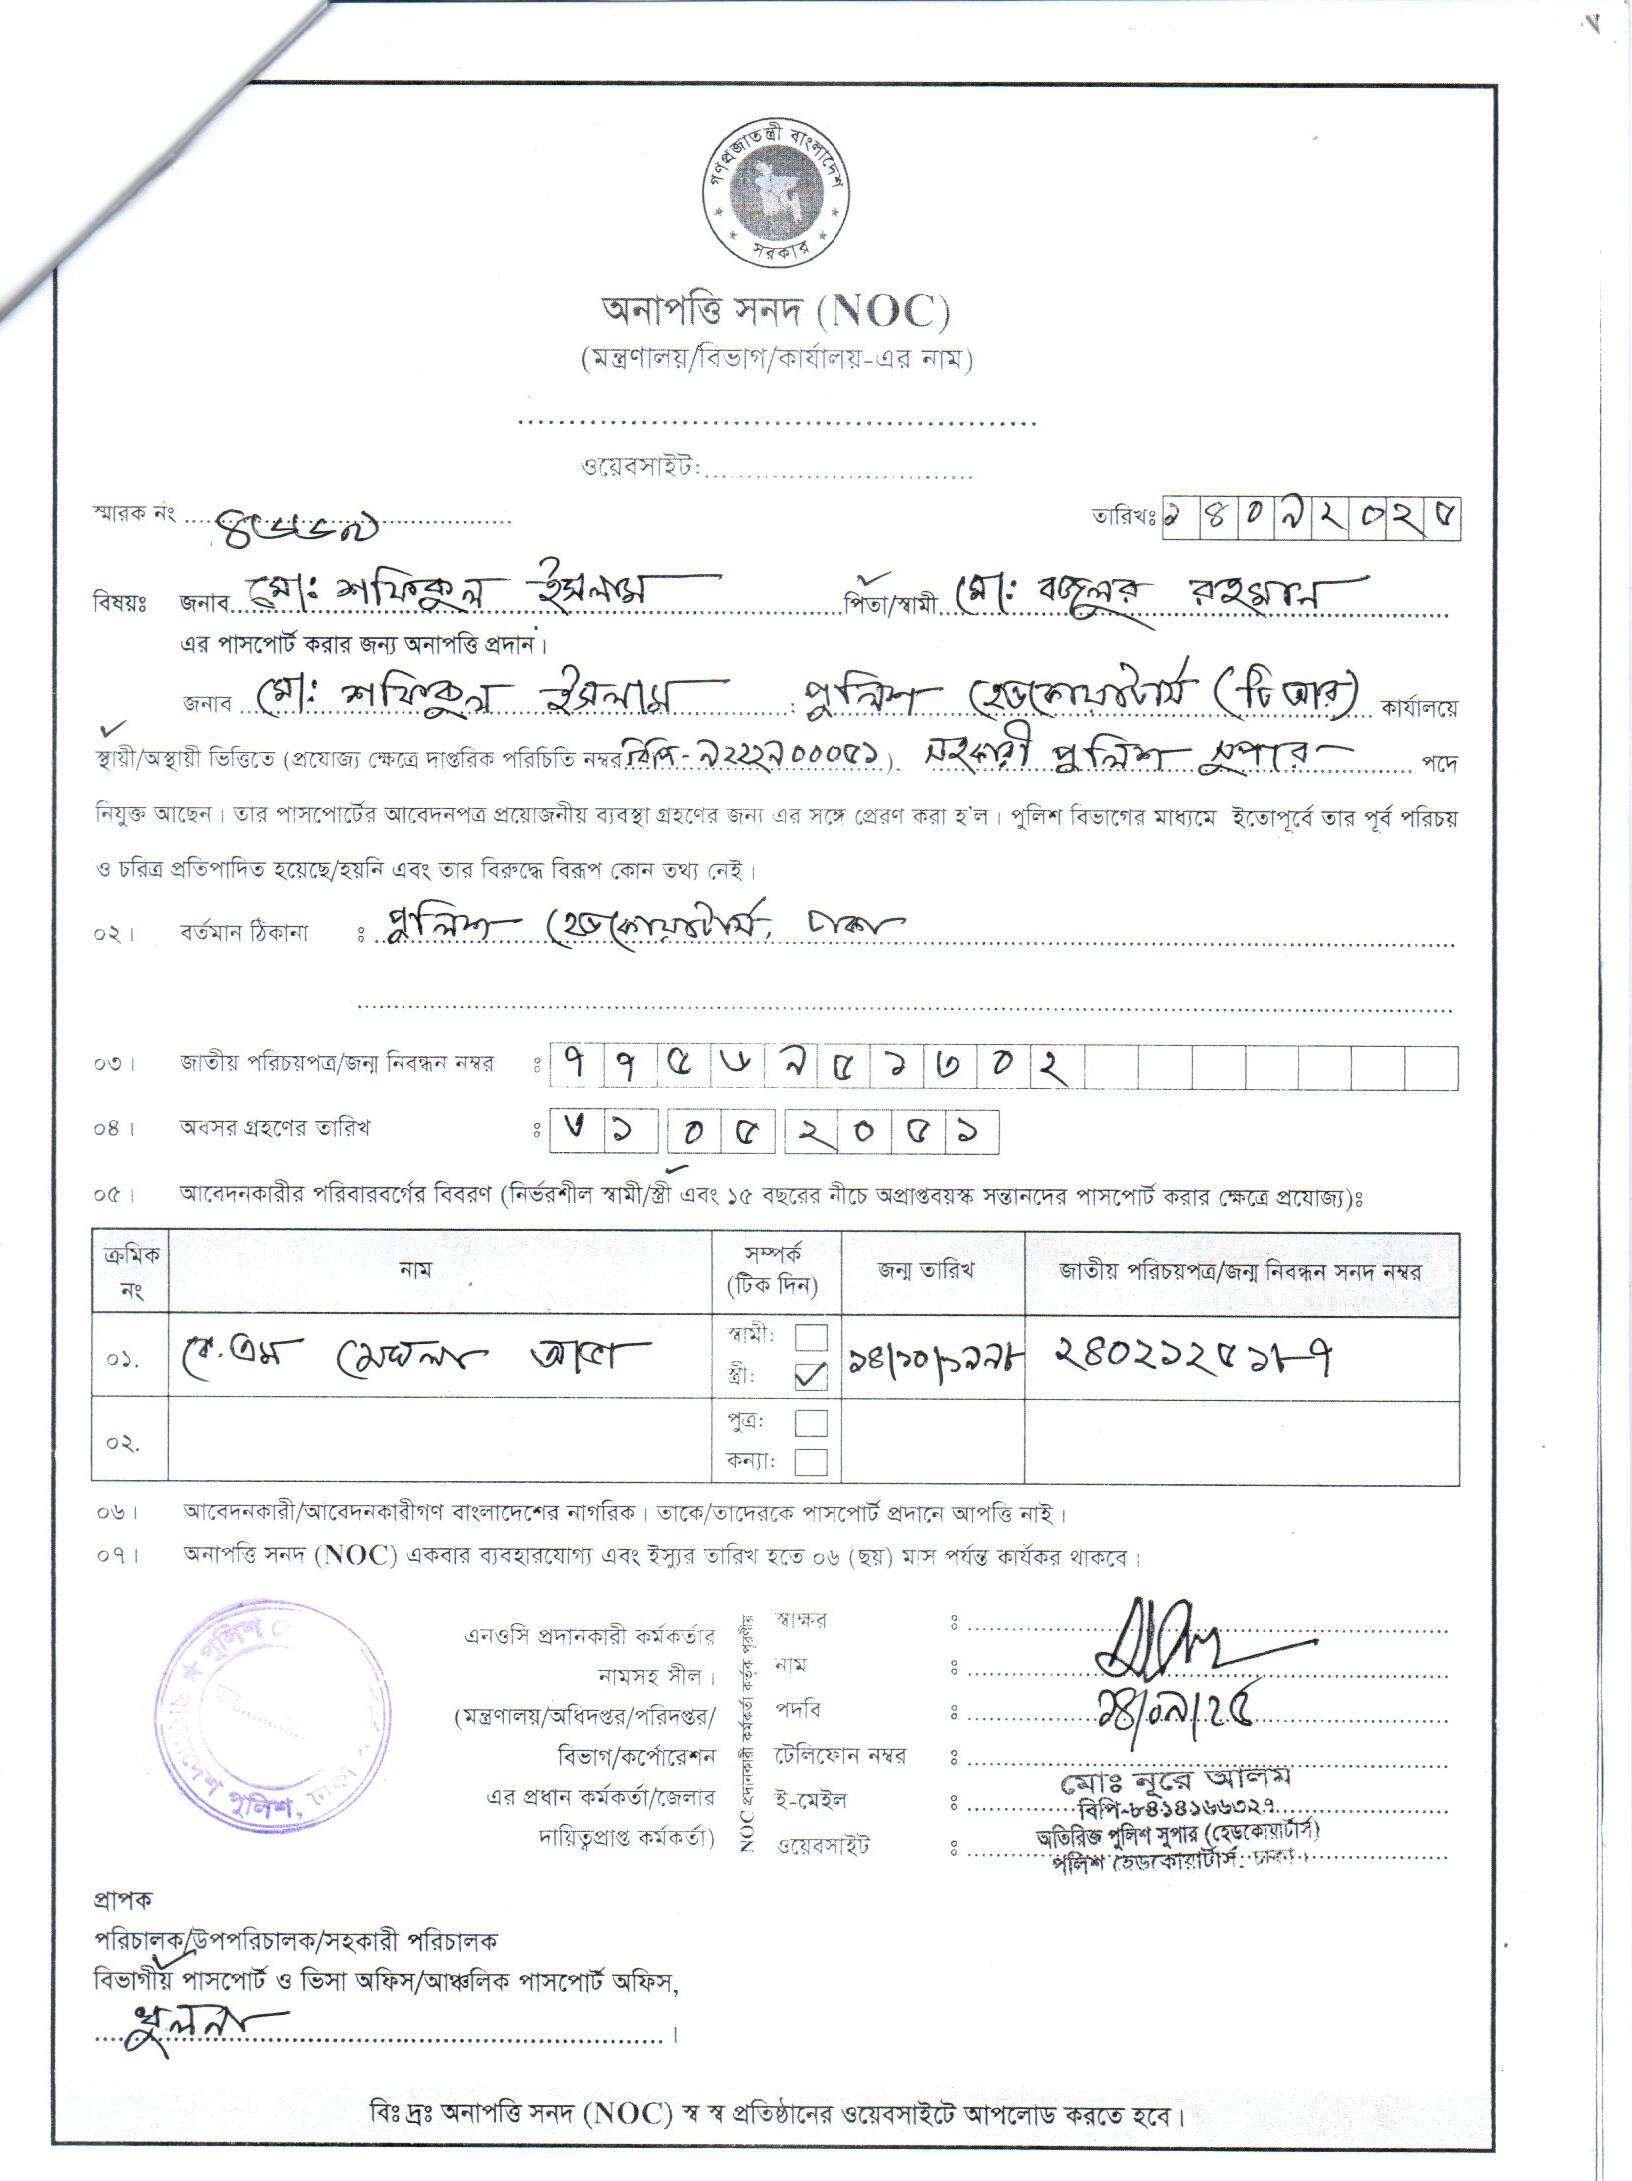 গণপ্রজাতন্ত্রী বাংলাদেশ
সরকার
অনাপত্তি সনদ (NOC)
(মন্ত্রণালয়/বিভাগ/কার্যালয়-এর নাম)
ওয়েবসাইট:
স্মারক নং তারিখঃ ১৪০৯২০২৫
বিষয়ঃ জনাব মো: শফিকুল ইসলাম পিতা/স্বামী মো: বজলুর রহমান
এর পাসপোর্ট করার জন্য অনাপত্তি প্রদান।
জনাব মো: শফিকুল ইসলাম : পুলিশ হেডকোয়ার্টার্স (টিআর) কার্যালয়ে
স্থায়ী/অস্থায়ী ভিত্তিতে (প্রযোজ্য ক্ষেত্রে দাপ্তরিক পরিচিতি নম্বর বিপি-৯২২২৯০০০৫১). সহকারী পুলিশ সুপার পদে
নিযুক্ত আছেন। তার পাসপোর্টের আবেদনপত্র প্রয়োজনীয় ব্যবস্থা গ্রহণের জন্য এর সঙ্গে প্রেরণ করা হ'ল। পুলিশ বিভাগের মাধ্যমে ইতোপূর্বে তার পূর্ব পরিচয়
ও চরিত্র প্রতিপাদিত হয়েছে/হয়নি এবং তার বিরুদ্ধে বিরূপ কোন তথ্য নেই।
০২। বর্তমান ঠিকানা ঃ পুলিশ হেডকোয়ার্টার্স, ঢাকা
০৩। জাতীয় পরিচয়পত্র/জন্ম নিবন্ধন নম্বর ঃ ৭৭৫৬৯৫১৩০২
০৪। অবসর গ্রহণের তারিখ ঃ ৩১ ০৫ ২০৫১
০৫। আবেদনকারীর পরিবারবর্গের বিবরণ (নির্ভরশীল স্বামী/স্ত্রী এবং ১৫ বছরের নীচে অপ্রাপ্তবয়স্ক সন্তানদের পাসপোর্ট করার ক্ষেত্রে প্রযোজ্য)ঃ
ক্রমিক নং নাম সম্পর্ক (টিক দিন) জন্ম তারিখ জাতীয় পরিচয়পত্র/জন্ম নিবন্ধন সনদ নম্বর
০১. কে.এম মেঘলা স্বামী: স্ত্রী: ১৪/১০/১৯৯৮ ২৪০২১২৫১৮৭
০২. পুত্র: কন্যা:
০৬। আবেদনকারী/আবেদনকারীগণ বাংলাদেশের নাগরিক। তাকে/তাদেরকে পাসপোর্ট প্রদানে আপত্তি নাই।
০৭। অনাপত্তি সনদ (NOC) একবার ব্যবহারযোগ্য এবং ইস্যুর তারিখ হতে ০৬ (ছয়) মাস পর্যন্ত কার্যকর থাকবে।
বাংলাদেশ পুলিশ, ঢাকা
পুলিশ
এনওসি প্রদানকারী কর্মকর্তার
নামসহ সীল।
(মন্ত্রণালয়/অধিদপ্তর/পরিদপ্তর/
বিভাগ/কর্পোরেশন
এর প্রধান কর্মকর্তা/জেলার
দায়িত্বপ্রাপ্ত কর্মকর্তা)
NOC প্রদানকারী কর্মকর্তা কর্তৃক পূরণীয়
স্বাক্ষর ঃ
নাম ঃ
পদবি ঃ ১৪/০৯/২৫
টেলিফোন নম্বর ঃ
ই-মেইল ঃ
ওয়েবসাইট ঃ
মোঃ নূরে আলম
বিপি-৮৪১৪১৬৬৩২৭
অতিরিক্ত পুলিশ সুপার (হেডকোয়ার্টার্স)
পুলিশ হেডকোয়ার্টার্স, ঢাকা।
প্রাপক
পরিচালক/উপপরিচালক/সহকারী পরিচালক
বিভাগীয় পাসপোর্ট ও ভিসা অফিস/আঞ্চলিক পাসপোর্ট অফিস,
খুলনা।
বিঃ দ্রঃ অনাপত্তি সনদ (NOC) স্ব স্ব প্রতিষ্ঠানের ওয়েবসাইটে আপলোড করতে হবে।